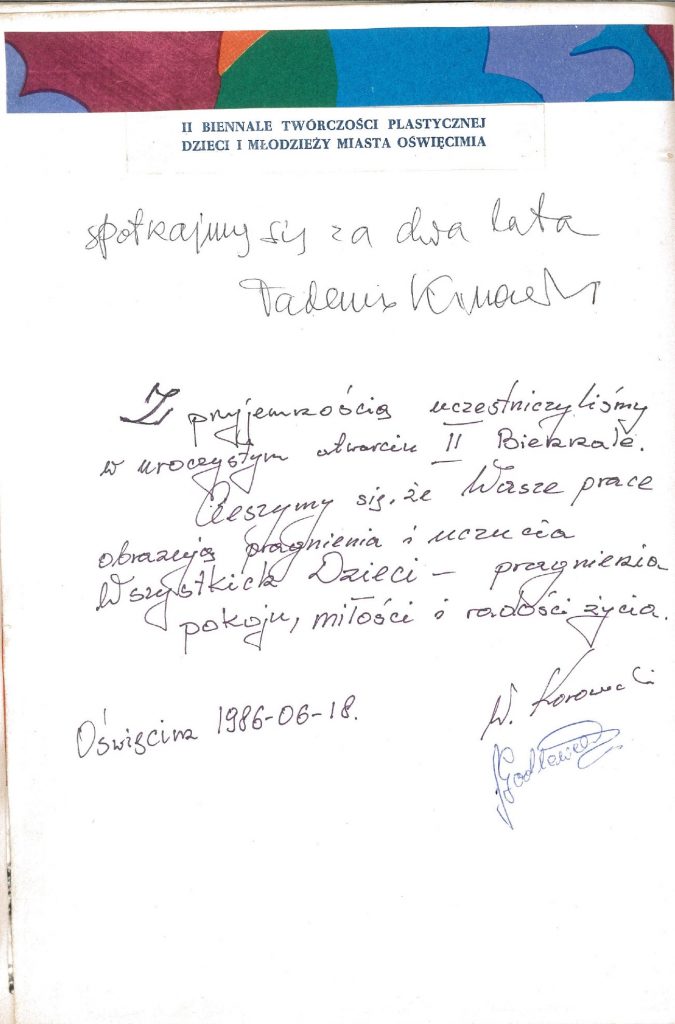 II BIENNALE TWÓRCZOŚCI PLASTYCZNEJ
DZIECI I MŁODZIEŻY MIASTA OŚWIĘCIMIA
spotkajmy się za dwa lata
Tadeusz
Z przyjemnością uczestniczyliśmy
w uroczystym otwarciu II Biennale.
Cieszymy się, że Wasze prace
obrazują pragnienia i uczucia
Wszystkich Dzieci – pragnienia
pokoju, miłości i radości życia.
Oświęcim 1986-06-18.
W.